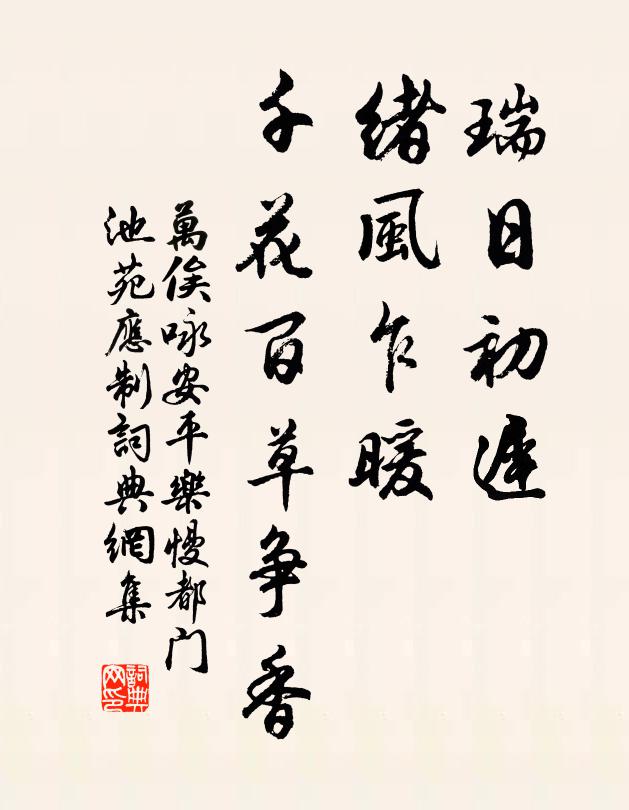 瑞日初遲
緒風乍暖
千花百草争香
萬俟咏安平樂慢都门
池苑應制詞典網集
詞典網印